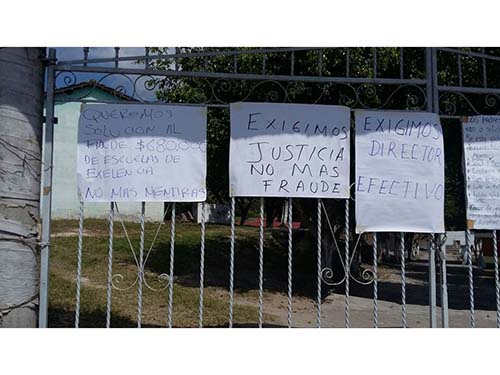 QUEREMOS
SOLUCION AL
FRAUDE $680,000
DE ESCUELAS DE
EXELENCIA
NO MAS MENTIRAS
EXIGIMOS
JUSTICIA
NO MAS
FRAUDE
EXIGIMOS
DIRECTOR
EFECTIVO